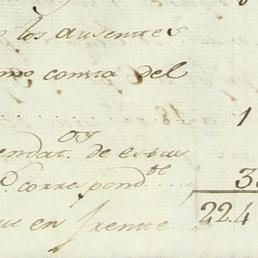 los ausentes
mo, consta del
1
endat.ᵒˢ de estas
correspond.ᵗᵉ 3
en frente 22.4